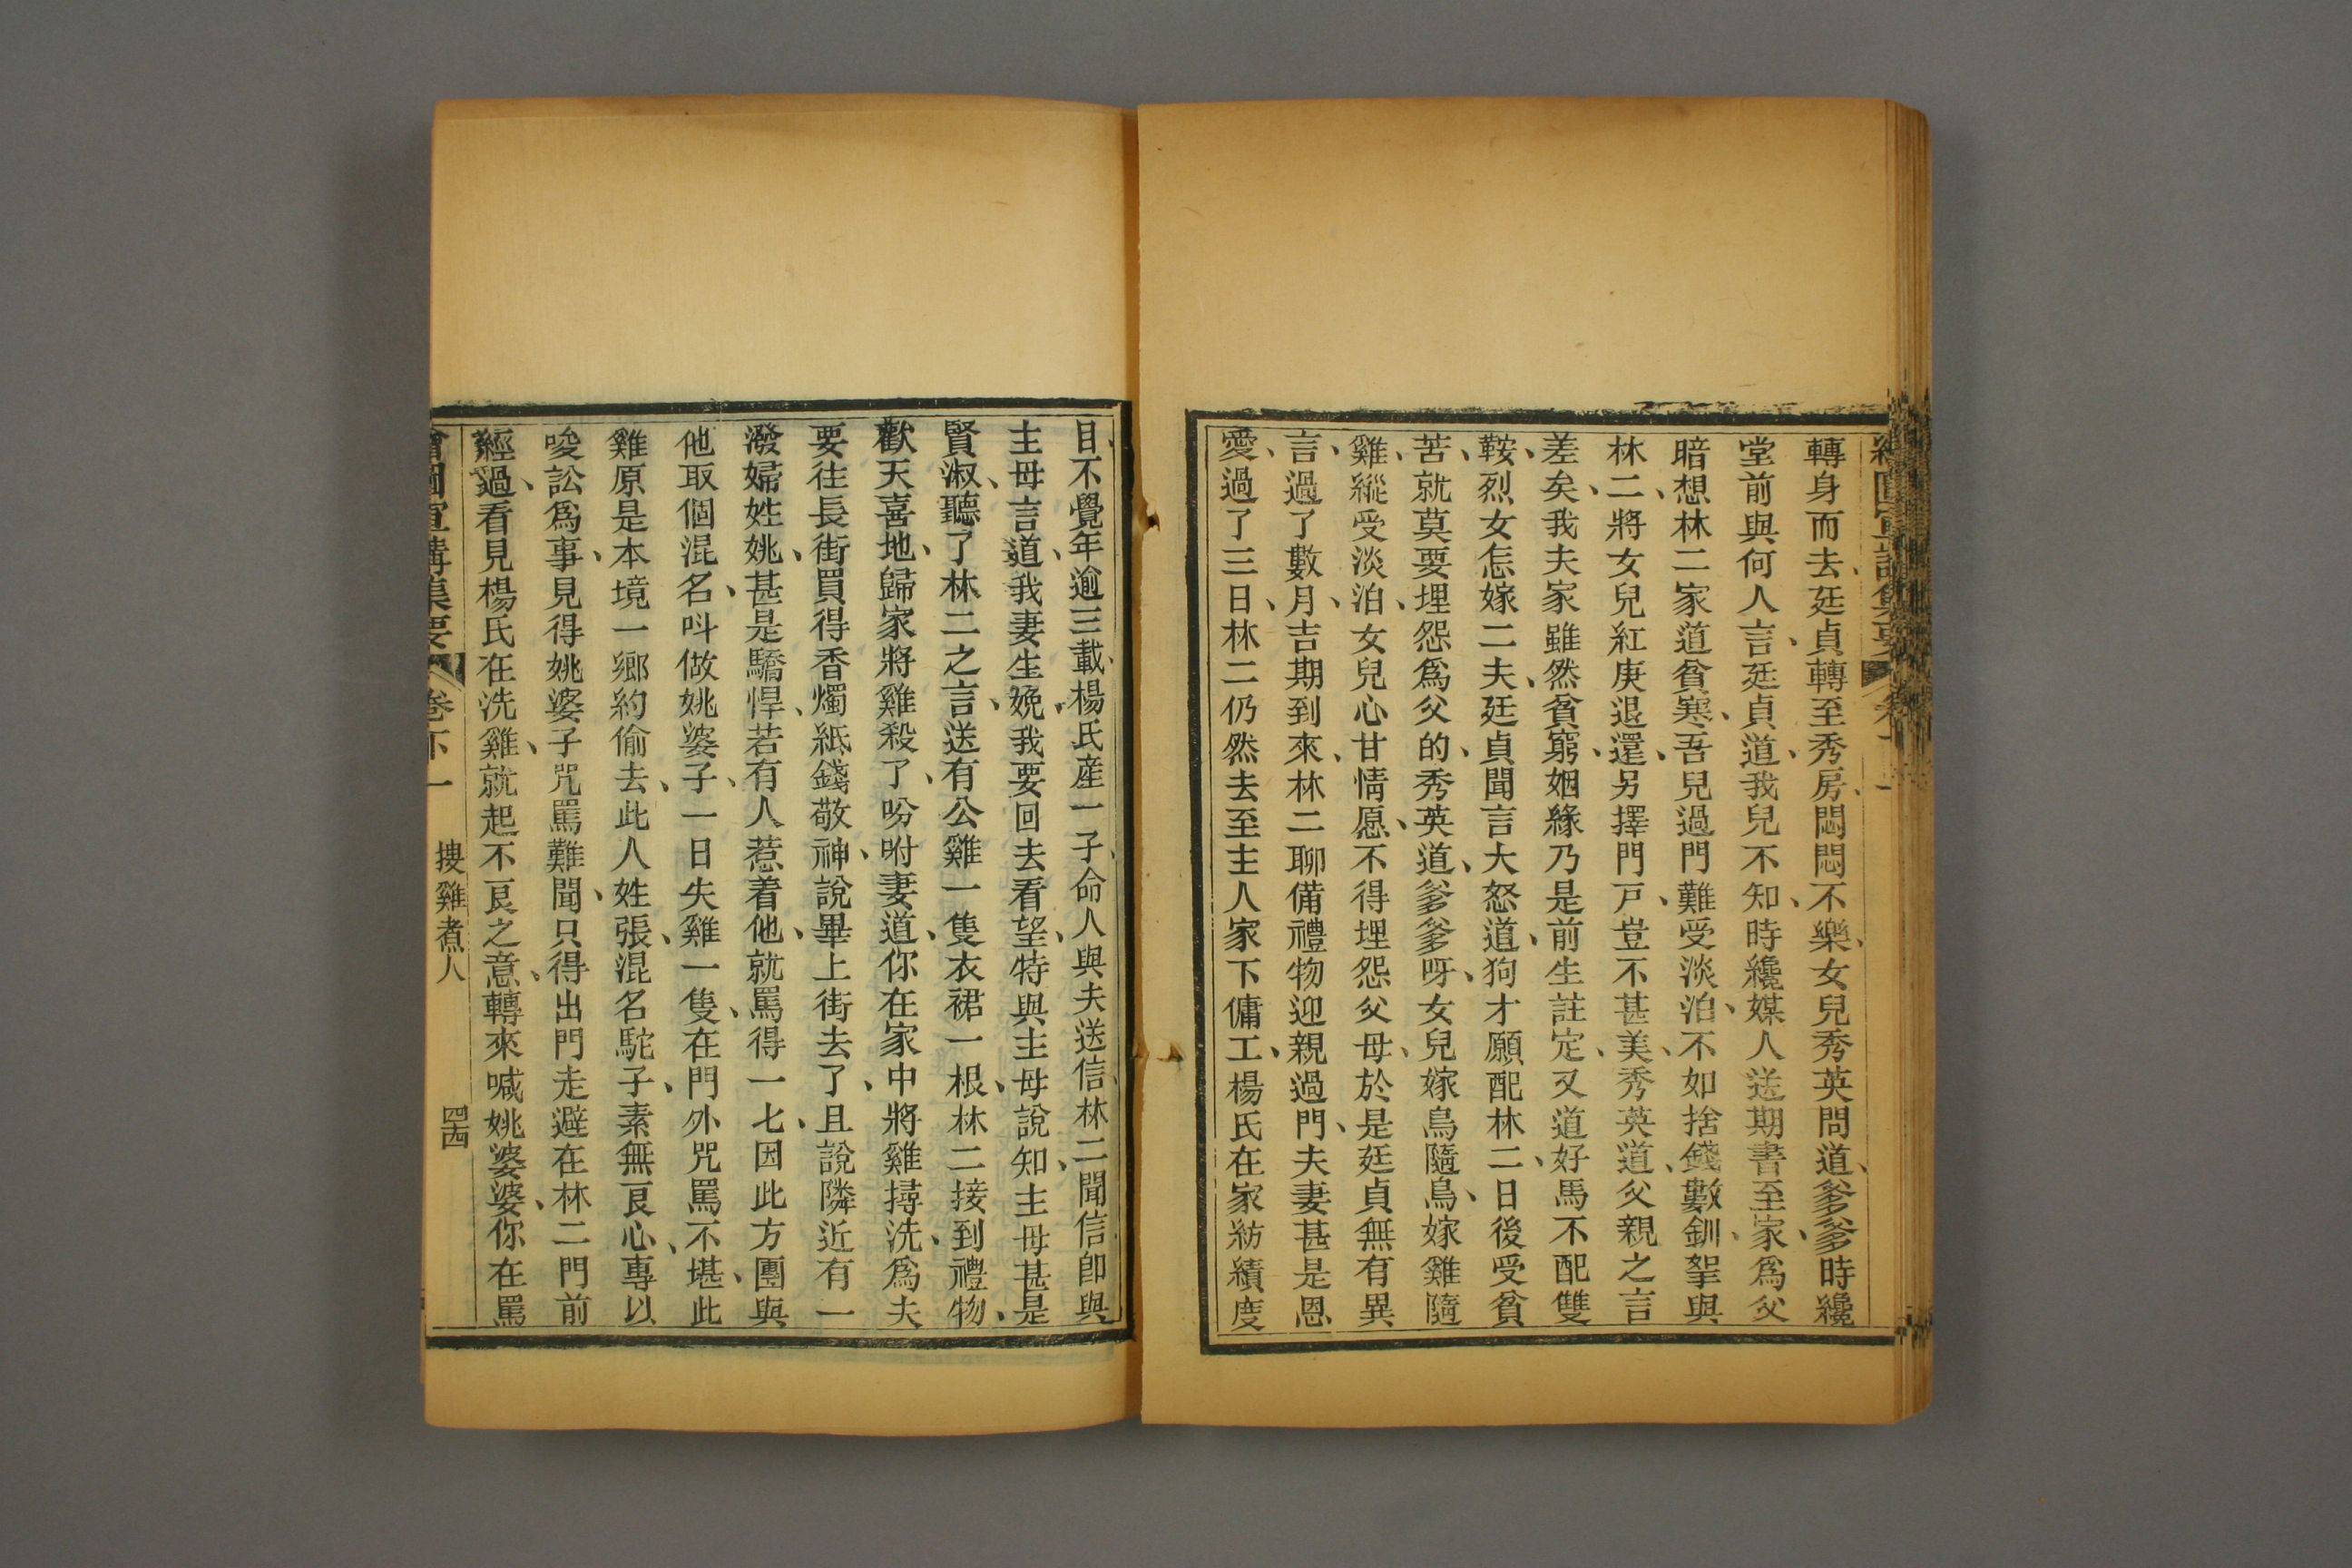 轉身而去、廷貞轉至秀房、悶悶不樂、女兒秀英問道、爹爹時纔
堂前與何人言、廷貞道、我兒不知、時纔媒人送期書至家、爲父
暗想林二家道貧寒、吾兒過門難受淡泊、不如捨錢數釧、挐與
林二、將女兒紅庚退還、另擇門戸、豈不甚美、秀英道、父親之言
差矣、我夫家雖然貧窮、姻緣乃是前生註定、又道好馬不配雙
鞍、烈女怎嫁二夫、廷貞聞言大怒道、狗才願配林二、日後受貧
苦、就莫要埋怨爲父的、秀英道、爹爹呀、女兒嫁鳥隨鳥、嫁雞隨
雞、縱受淡泊、女兒心甘情愿、不得埋怨父母、於是廷貞無有異
言、過了數月、吉期到來、林二聊備禮物迎親過門、夫妻甚是恩
愛、過了三日、林二仍然去至主人家下傭工、楊氏在家紡績度
日、不覺年逾三載、楊氏産一子、命人與夫送信、林二聞信卽與
主母言道、我妻生娩、我要回去看望、特與主母說知、主母甚是
賢淑、聽了林二之言、送有公雞一隻衣裙一根、林二接到禮物、
歡天喜地、歸家將雞殺了、吩咐妻道、你在家中將雞撏洗、爲夫
要往長街買得香燭紙錢敬神、說畢上街去了、且說隣近有一
潑婦姓姚、甚是驕悍、若有人惹着他、就罵得一七、因此方團與
他取個混名、呌做姚婆子、一日失雞一隻、在門外咒罵不堪、此
雞原是本境一鄉約偷去、此人姓張、混名駝子、素無良心、專以
唆訟爲事、見得姚婆子咒罵難聞、只得出門走避、在林二門前
經過、看見楊氏在洗雞、就起不良之意、轉來喊姚婆婆、你在罵
繪圖宣講集要 卷下一 搜雞煮人 四西